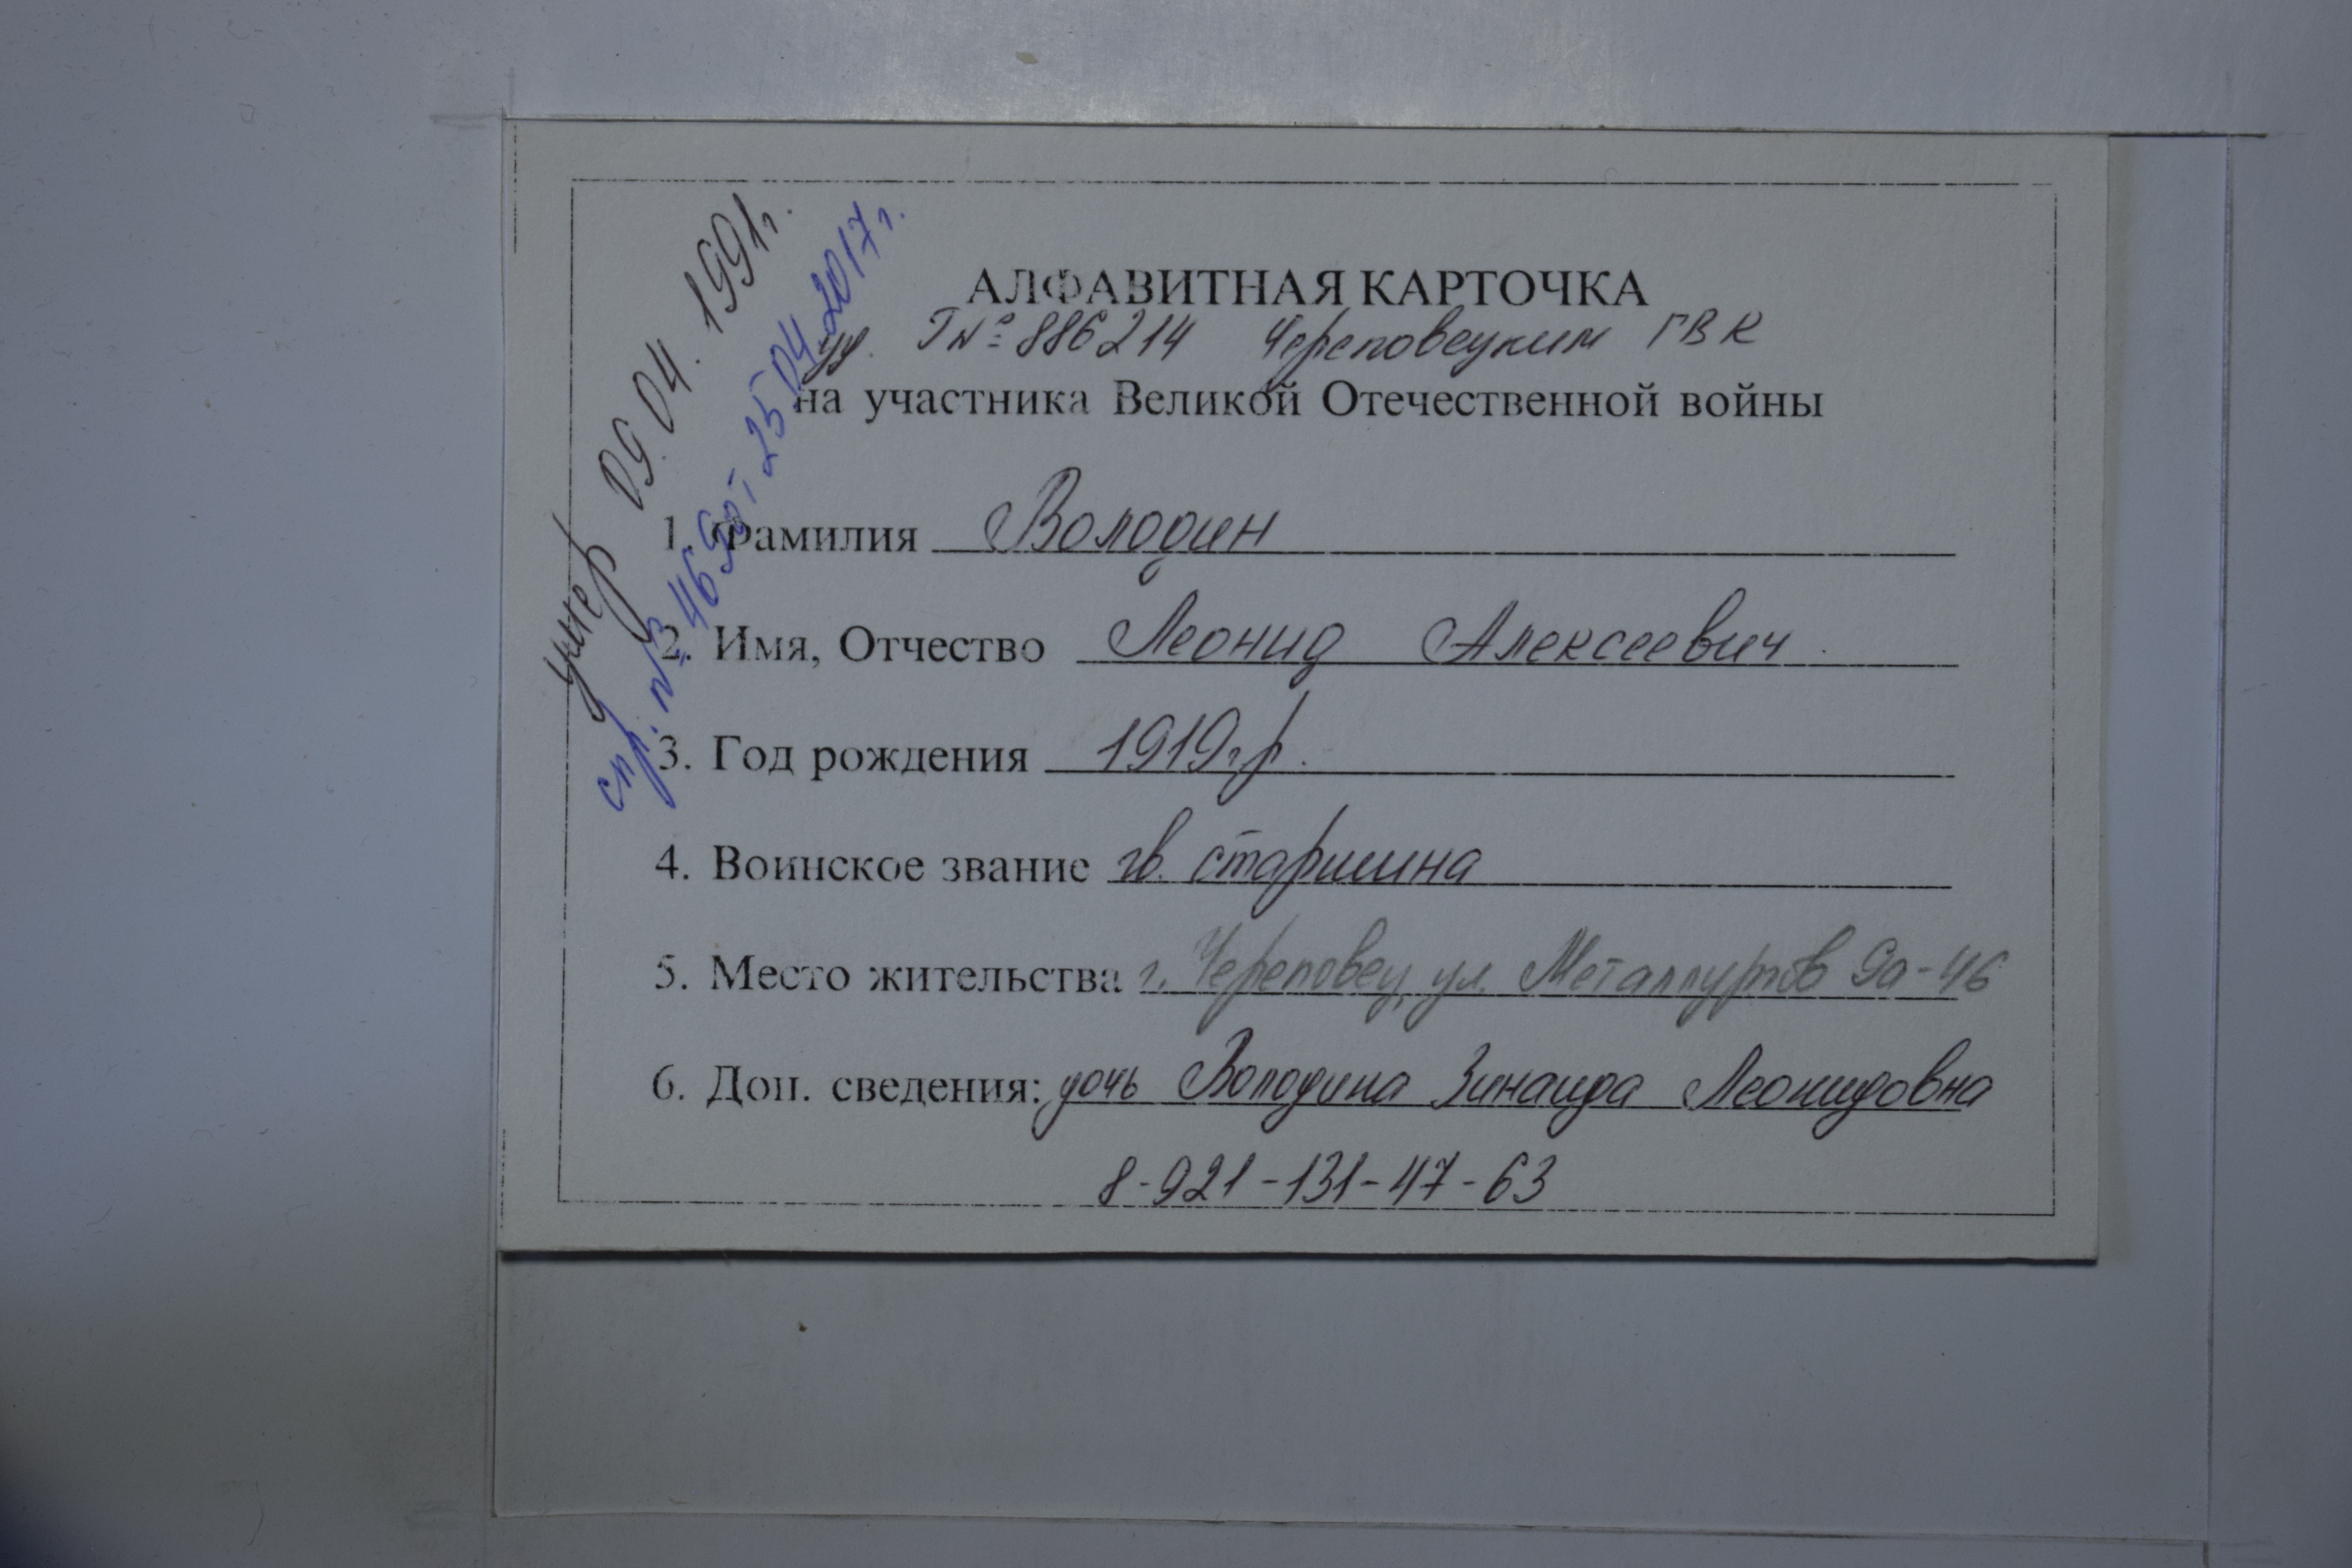 умер 09.04.1991г.
спр. № 4690т 25.04.2017г.
АЛФАВИТНАЯ КАРТОЧКА
уд. Г№ 886214 Череповецким ГВК
на участника Великой Отечественной войны
1. Фамилия Володин
2. Имя, Отчество Леонид Алексеевич
3. Год рождения 1919г.р.
4. Воинское звание гв. старшина
5. Место жительства г. Череповец, ул. Металлургов 9а-46
6. Доп. сведения: дочь Володина Зинаида Леонидовна
8-921-131-47-63